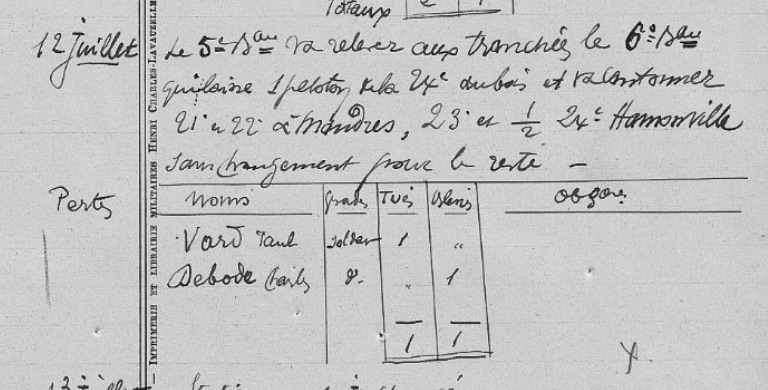 Totaux
12 Juillet Le 5e Bau va relever aux tranchées le 6e Bau
qui laisse 1 peloton de la 24e au bois et va cantonner
21e et 22e à Mandres, 23e et 1/2 24e Hamonville
sans changement pour le reste —
Pertes Noms Grades Tués Blessés Obsons
Vard Paul soldat 1 "
Debode Charles d° " 1
1 1
IMPRIMERIE ET LIBRAIRIE MILITAIRES HENRI CHARLES-LAVAUZELLE